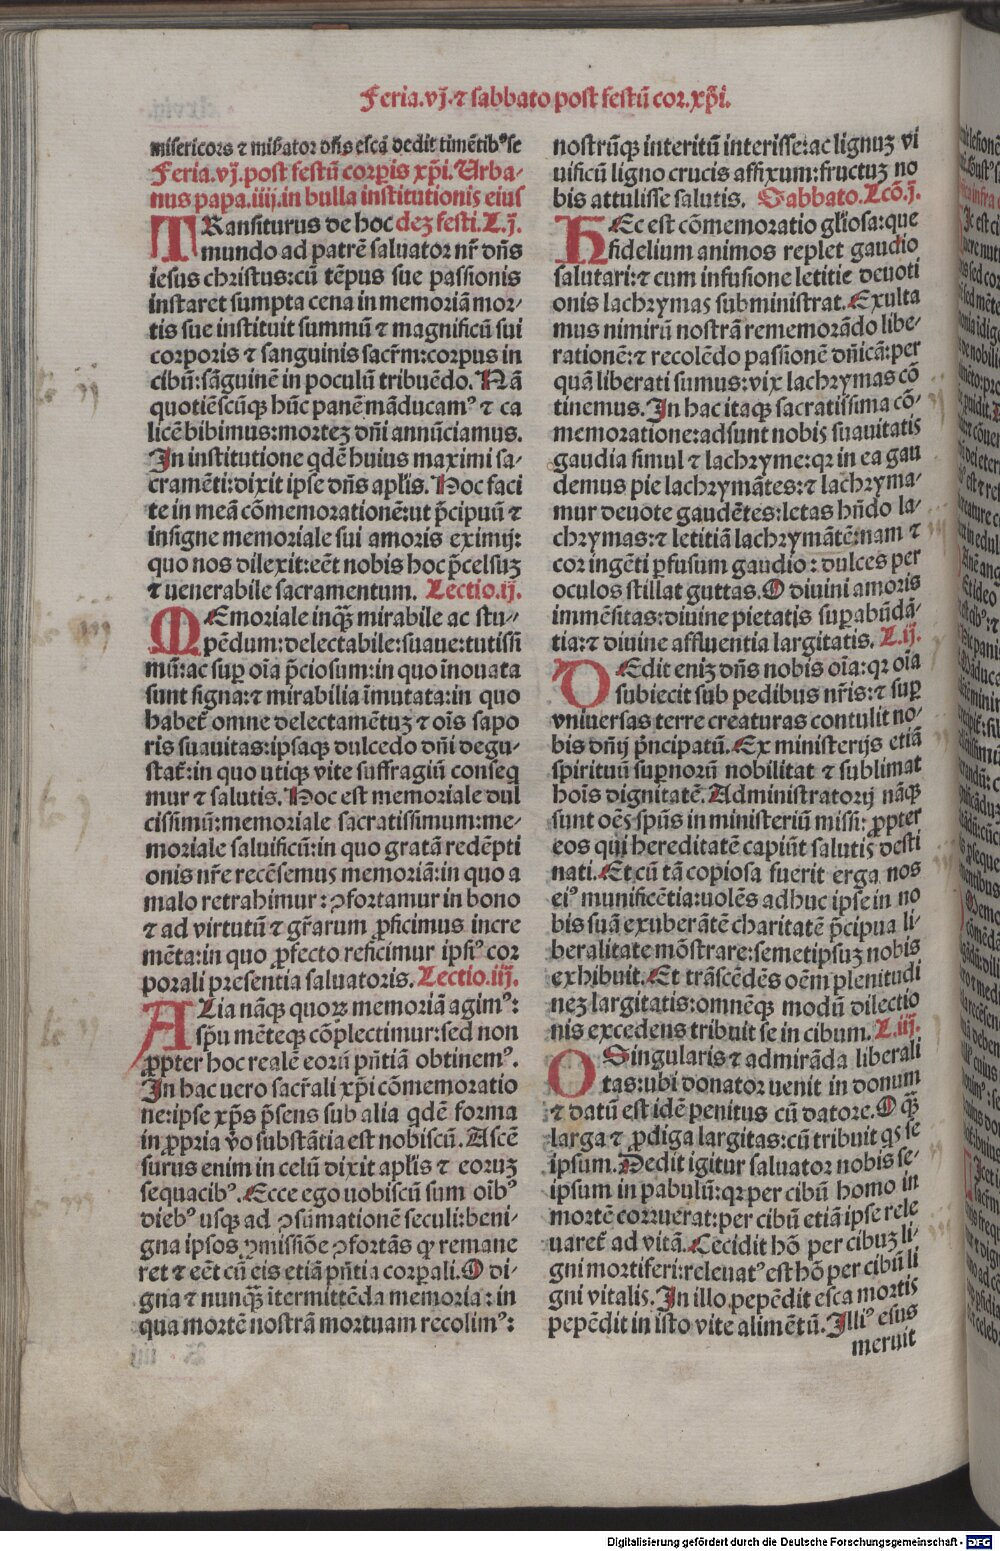 Feria.vj.⁊ sabbato post festū cor.xp̄i.
misericors ⁊ mis̄ator dn̄s escā dedit timētibꝰse
Feria.vj.post festū corpis xp̄i.Urba-
nus papa.iiij.in bulla institutionis eius
TRansiturus de hoc deꝫ festi.L.j.
mundo ad patrē saluator nr̄ dn̄s
iesus christus:cū tēpus sue passionis
instaret sumpta cena in memoriā mor-
tis sue instituit summū ⁊ magnificū sui
corporis ⁊ sanguinis sacr̄m:corpus in
cibū:sāguinē in poculū tribuēdo.Nā
quotiēscūqꝫ hūc panē māducamꝰ ⁊ ca
licē bibimus:morteꝫ dn̄i annūciamus.
In institutione qdē huius maximi sa-
cramēti:dixit ipse dn̄s apl̄is.Hoc faci
te in meā cōmemorationē:ut p̄cipuū ⁊
insigne memoriale sui amoris eximij:
quo nos dilexit:eēt nobis hoc p̄celsuꝫ
⁊ uenerabile sacramentum. Lectio.ij.
MEmoriale inqꝫ̄ mirabile ac stu-
pēdum:delectabile:suaue:tutissi
mū:ac suꝑ oīa p̄ciosum:in quo īnouata
sunt signa:⁊ mirabilia īmutata:in quo
habet̄ omne delectamētuꝫ ⁊ oīs sapo
ris suauitas:ipsaqꝫ dulcedo dn̄i degu-
stat̄:in quo utiqꝫ vite suffragiū conseq
mur ⁊ salutis.Hoc est memoriale dul
cissimū:memoriale sacratissimum:me-
moriale saluificū:in quo gratā redēpti
onis nr̄e recēsemus memoriā:in quo a
malo retrahimur:ꝯfortamur in bono
⁊ ad virtutū ⁊ gr̄arum ꝓficimus incre
mēta:in quo ꝓfecto reficimur ipsiꝰ cor
porali presentia saluatoris.Lectio.iij.
ALia nāqꝫ quoꝝ memoriā agimꝰ:
sp̄u mēteqꝫ cōplectimur:sed non
ꝓpter hoc realē eorū pn̄tiā obtinemꝰ.
In hac uero sacr̄ali xp̄i cōmemoratio
ne:ipse xp̄s p̄sens sub alia qdē forma
in ꝓpria v̄o substātia est nobiscū.Ascē
surus enim in celū dixit apl̄is ⁊ eoruꝫ
sequacibꝰ.Ecce ego uobiscū sum oībꝰ
diebꝰ usqꝫ ad ꝯsūmationē seculi:beni-
gna ipsos ꝓmissiōe ꝯfortās qꝫ remane
ret ⁊ eēt cū eis etiā pn̄tia corꝑali.O di-
gna ⁊ nunqꝫ̄ ītermittēda memoria:in
qua mortē nostrā mortuam recolimꝰ:
nostrūqꝫ interitū interisse:ac lignuꝫ vi
uificū ligno crucis affixum:fructuꝫ no
bis attulisse salutis. Sabbato.Lcō.j.
HEc est cōmemoratio gl̄iosa:que
fidelium animos replet gaudio
salutari:⁊ cum infusione letitie deuoti
onis lachrymas subministrat.Exulta
mus nimirū nostrā rememorādo libe-
rationē:⁊ recolēdo passionē dn̄icā:per
quā liberati sumus:vix lachrymas cō
tinemus.In hac itaqꝫ sacratissima cō-
memoratione:adsunt nobis suauitatis
gaudia simul ⁊ lachryme:qꝛ in ea gau
demus pie lachrymātes:⁊ lachryma-
mur deuote gaudētes:letas hn̄do la-
chrymas:⁊ letitiā lachrymātē:nam ⁊
cor ingēti ꝑfusum gaudio:dulces per
oculos stillat guttas.O diuini amoris
immēsitas:diuine pietatis suꝑabūdā-
tia:⁊ diuine affluentia largitatis. L.ij.
DEdit eniꝫ dn̄s nobis oīa:qꝛ oīa
subiecit sub pedibus nr̄is:⁊ suꝑ
vniuersas terre creaturas contulit no-
bis dn̄ij p̄ncipatū.Ex ministerijs etiā
spirituū suꝑnorū nobilitat̄ ⁊ sublimat̄
hoīs dignitatē.Administratorij nāqꝫ
sunt oēs sp̄us in ministeriū missi:ꝓpter
eos qui hereditatē capiūt salutis desti
nati.Et cū tā copiosa fuerit erga nos
eiꝰ munificētia:uolēs adhuc ipse in no
bis suā exuberātē charitatē p̄cipua li-
beralitate mōstrare:semetipsuꝫ nobis
exhibuit.Et trāscēdēs oēm plenitudi
neꝫ largitatis:omnēqꝫ modū dilectio
nis excedens tribuit se in cibum. L.iij.
O Singularis ⁊ admirāda liberali
tas:ubi donator uenit in donum
⁊ datū est idē penitus cū datore.O qꝫ̄
larga ⁊ ꝓdiga largitas:cū tribuit qs se
ipsum.Dedit igitur saluator nobis se-
ipsum in pabulū:qꝛ per cibū homo in
mortē corruerat:per cibū etiā ipse rele
uaret̄ ad vitā.Cecidit hō per cibuꝫ li-
gni mortiferi:releuatꝰ est hō per cibū li
gni vitalis.In illo pepēdit esca mortis
pepēdit in isto vite alimētū.Illiꝰ esus
meruit
Digitalisierung gefördert durch die Deutsche Forschungsgemeinschaft - DFG